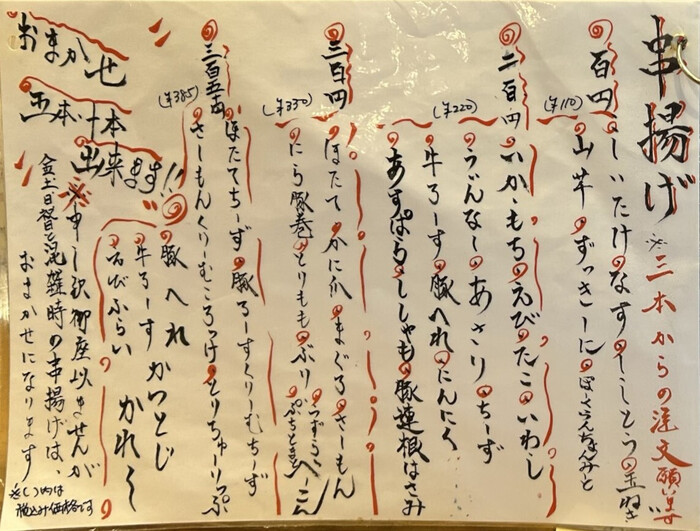 串揚げ
※三本からの注文願います
百円 (¥110)
しいたけ なす ししとう 玉ねぎ
山芋 ずっきーに ぽーくらんちょんみーと
二百円 (¥220)
いか もち えび たこ いわし
ういんなー あさり ちーず
牛ろーす 豚へれ にんにく
あすぱら ししゃも 豚蓮根はさみ
三百円 (¥330)
ほたて かに爪 まぐろ さーもん
にら豚巻 とりもも ぶり うずらべーこん ぷちとまと
三百五十円 (¥385)
ほたてちーず 豚ろーすくりーむちーず
さーもんくりーむころっけ とりちゅーりっぷ
豚へれ かつとじ
牛ろーす かれー
えびふらい
おまかせ
五本 十本
出来ます!!
※申し訳御座以ませんが
金土日祭と混雑時の串揚げは、
おまかせになります
※( )内は
税込み価格です